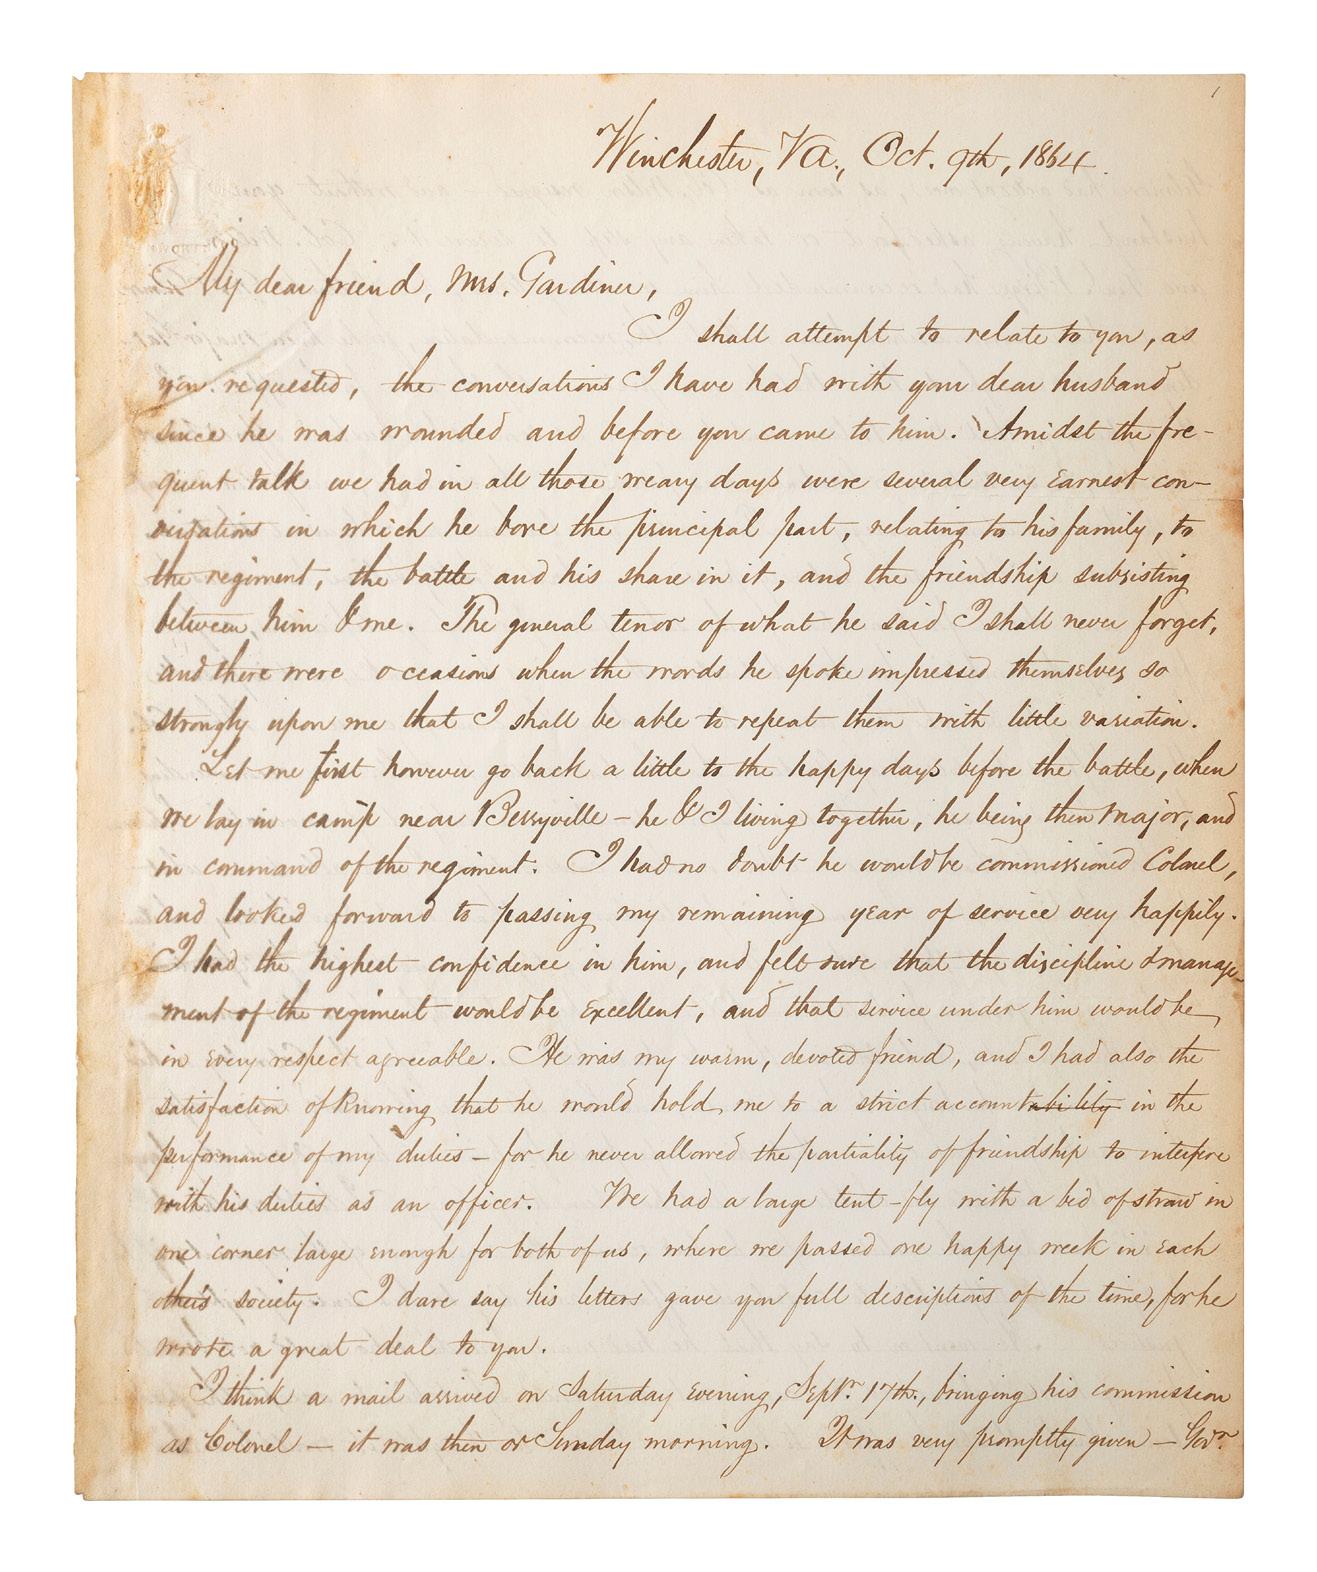 1
Winchester, Va., Oct. 9th, 1864.
My dear friend, Mrs. Gardiner,
I shall attempt to relate to you, as
you requested, the conversations I have had with your dear husband
since he was wounded and before you came to him. Amidst the fre-
quent talk we had in all those weary days were several very earnest con-
versations in which he bore the principal part, relating to his family, to
the regiment, the battle and his share in it, and the friendship subsisting
between him & me. The general tenor of what he said I shall never forget,
and there were occasions when the words he spoke impressed themselves so
strongly upon me that I shall be able to repeat them with little variation.
Let me first however go back a little to the happy days before the battle, when
we lay in camp near Berryville – he & I living together, he being then Major, and
in command of the regiment. I had no doubt he would be commissioned Colonel,
and looked forward to passing my remaining year of service very happily.
I had the highest confidence in him, and felt sure that the discipline & manage-
ment of the regiment would be excellent, and that service under him would be
in every respect agreeable. He was my warm, devoted friend, and I had also the
satisfaction of knowing that he would hold me to a strict accountability in the
performance of my duties – for he never allowed the partiality of friendship to interfere
with his duties as an officer. We had a large tent-fly with a bed of straw in
one corner large enough for both of us, where we passed one happy week in each
other's society. I dare say his letters gave you full descriptions of the time, for he
wrote a great deal to you.
I think a mail arrived on Saturday evening, Septr. 17th., bringing his commission
as Colonel – it was then or Sunday morning. It was very promptly given – Govr.